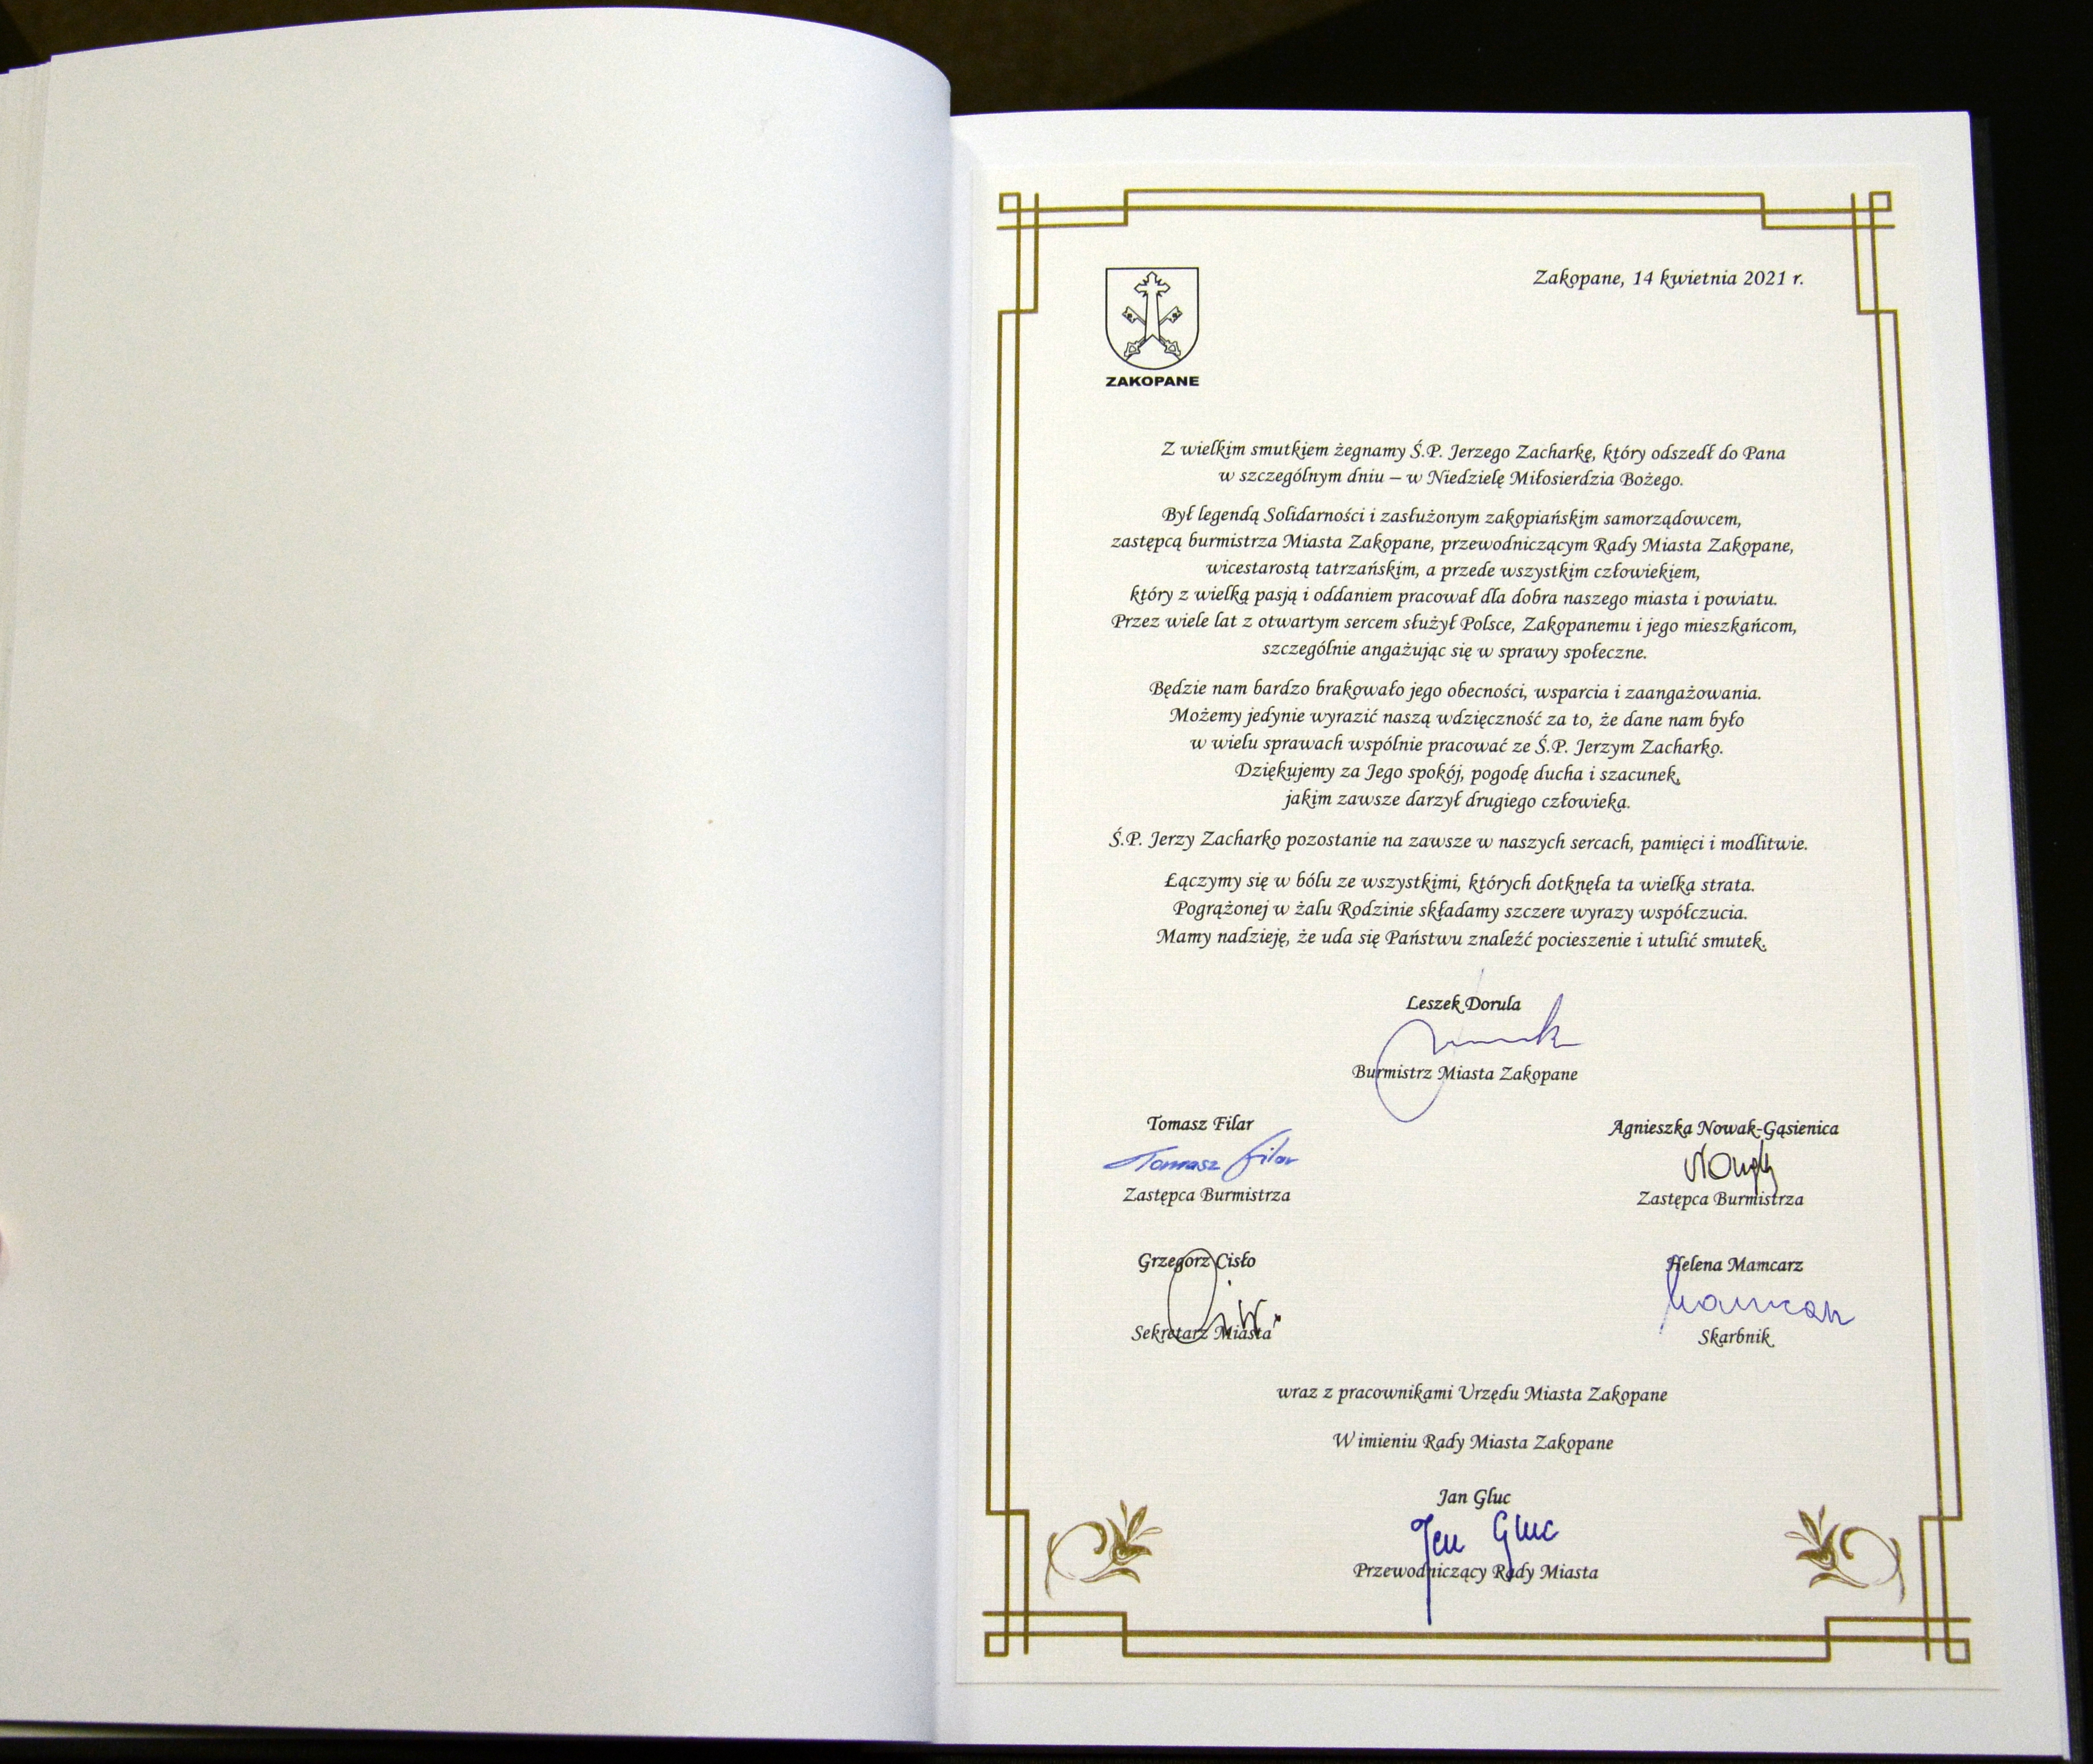 Zakopane, 14 kwietnia 2021 r.
ZAKOPANE
Z wielkim smutkiem żegnamy Ś.P. Jerzego Zacharkę, który odszedł do Pana
w szczególnym dniu – w Niedzielę Miłosierdzia Bożego.
Był legendą Solidarności i zasłużonym zakopiańskim samorządowcem,
zastępcą burmistrza Miasta Zakopane, przewodniczącym Rady Miasta Zakopane,
wicestarostą tatrzańskim, a przede wszystkim człowiekiem,
który z wielką pasją i oddaniem pracował dla dobra naszego miasta i powiatu.
Przez wiele lat z otwartym sercem służył Polsce, Zakopanemu i jego mieszkańcom,
szczególnie angażując się w sprawy społeczne.
Będzie nam bardzo brakowało jego obecności, wsparcia i zaangażowania.
Możemy jedynie wyrazić naszą wdzięczność za to, że dane nam było
w wielu sprawach wspólnie pracować ze Ś.P. Jerzym Zacharko.
Dziękujemy za Jego spokój, pogodę ducha i szacunek,
jakim zawsze darzył drugiego człowieka.
Ś.P. Jerzy Zacharko pozostanie na zawsze w naszych sercach, pamięci i modlitwie.
Łączymy się w bólu ze wszystkimi, których dotknęła ta wielka strata.
Pogrążonej w żalu Rodzinie składamy szczere wyrazy współczucia.
Mamy nadzieję, że uda się Państwu znaleźć pocieszenie i utulić smutek.
Leszek Dorula
Burmistrz Miasta Zakopane
Tomasz Filar
Tomasz Filar
Zastępca Burmistrza
Agnieszka Nowak-Gąsienica
Zastępca Burmistrza
Grzegorz Cisło
Sekretarz Miasta
Helena Mamcarz
Mamcarz
Skarbnik
wraz z pracownikami Urzędu Miasta Zakopane
W imieniu Rady Miasta Zakopane
Jan Gluc
Jan Gluc
Przewodniczący Rady Miasta